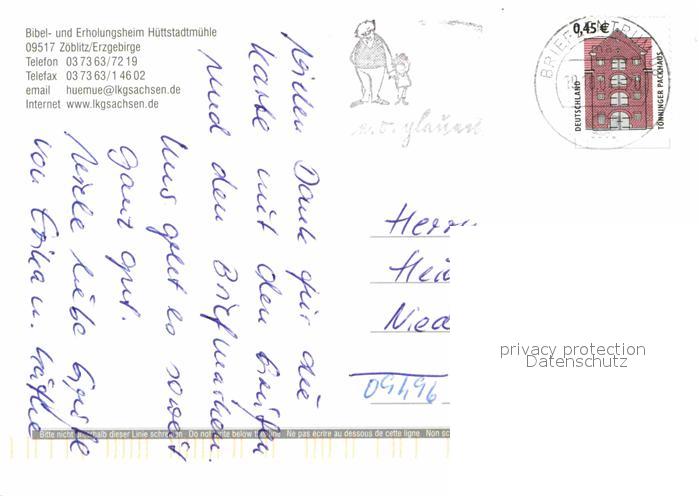 Bibel- und Erholungsheim Hüttstadtmühle
09517 Zöblitz/Erzgebirge
Telefon 03 73 63/72 19
Telefax 03 73 63/1 46 02
email huemue@lkgsachsen.de
Internet www.lkgsachsen.de
Vielen Dank für die
Karte mit den Grüßen
und den Briefmarken.
Uns geht es soweit
ganz gut.
Viele liebe Grüße
von Erika u.
0,45 €
DEUTSCHLAND
TÖNNINGER PACKHAUS
BRIEFZENTRUM
Herrn
Hei
Nied
09496
privacy protection
Datenschutz
Bitte nicht unterhalb dieser Linie schreiben Do not write below this line Ne pas écrire au dessous de cette ligne Non sc